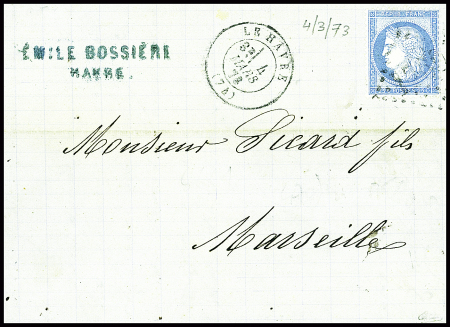 ÉMILE BOSSIÈRE
HAVRE.
LE HAVRE
4
MARS
73
(74)
4/3/73
Monsieur Sicard fils
Marseille